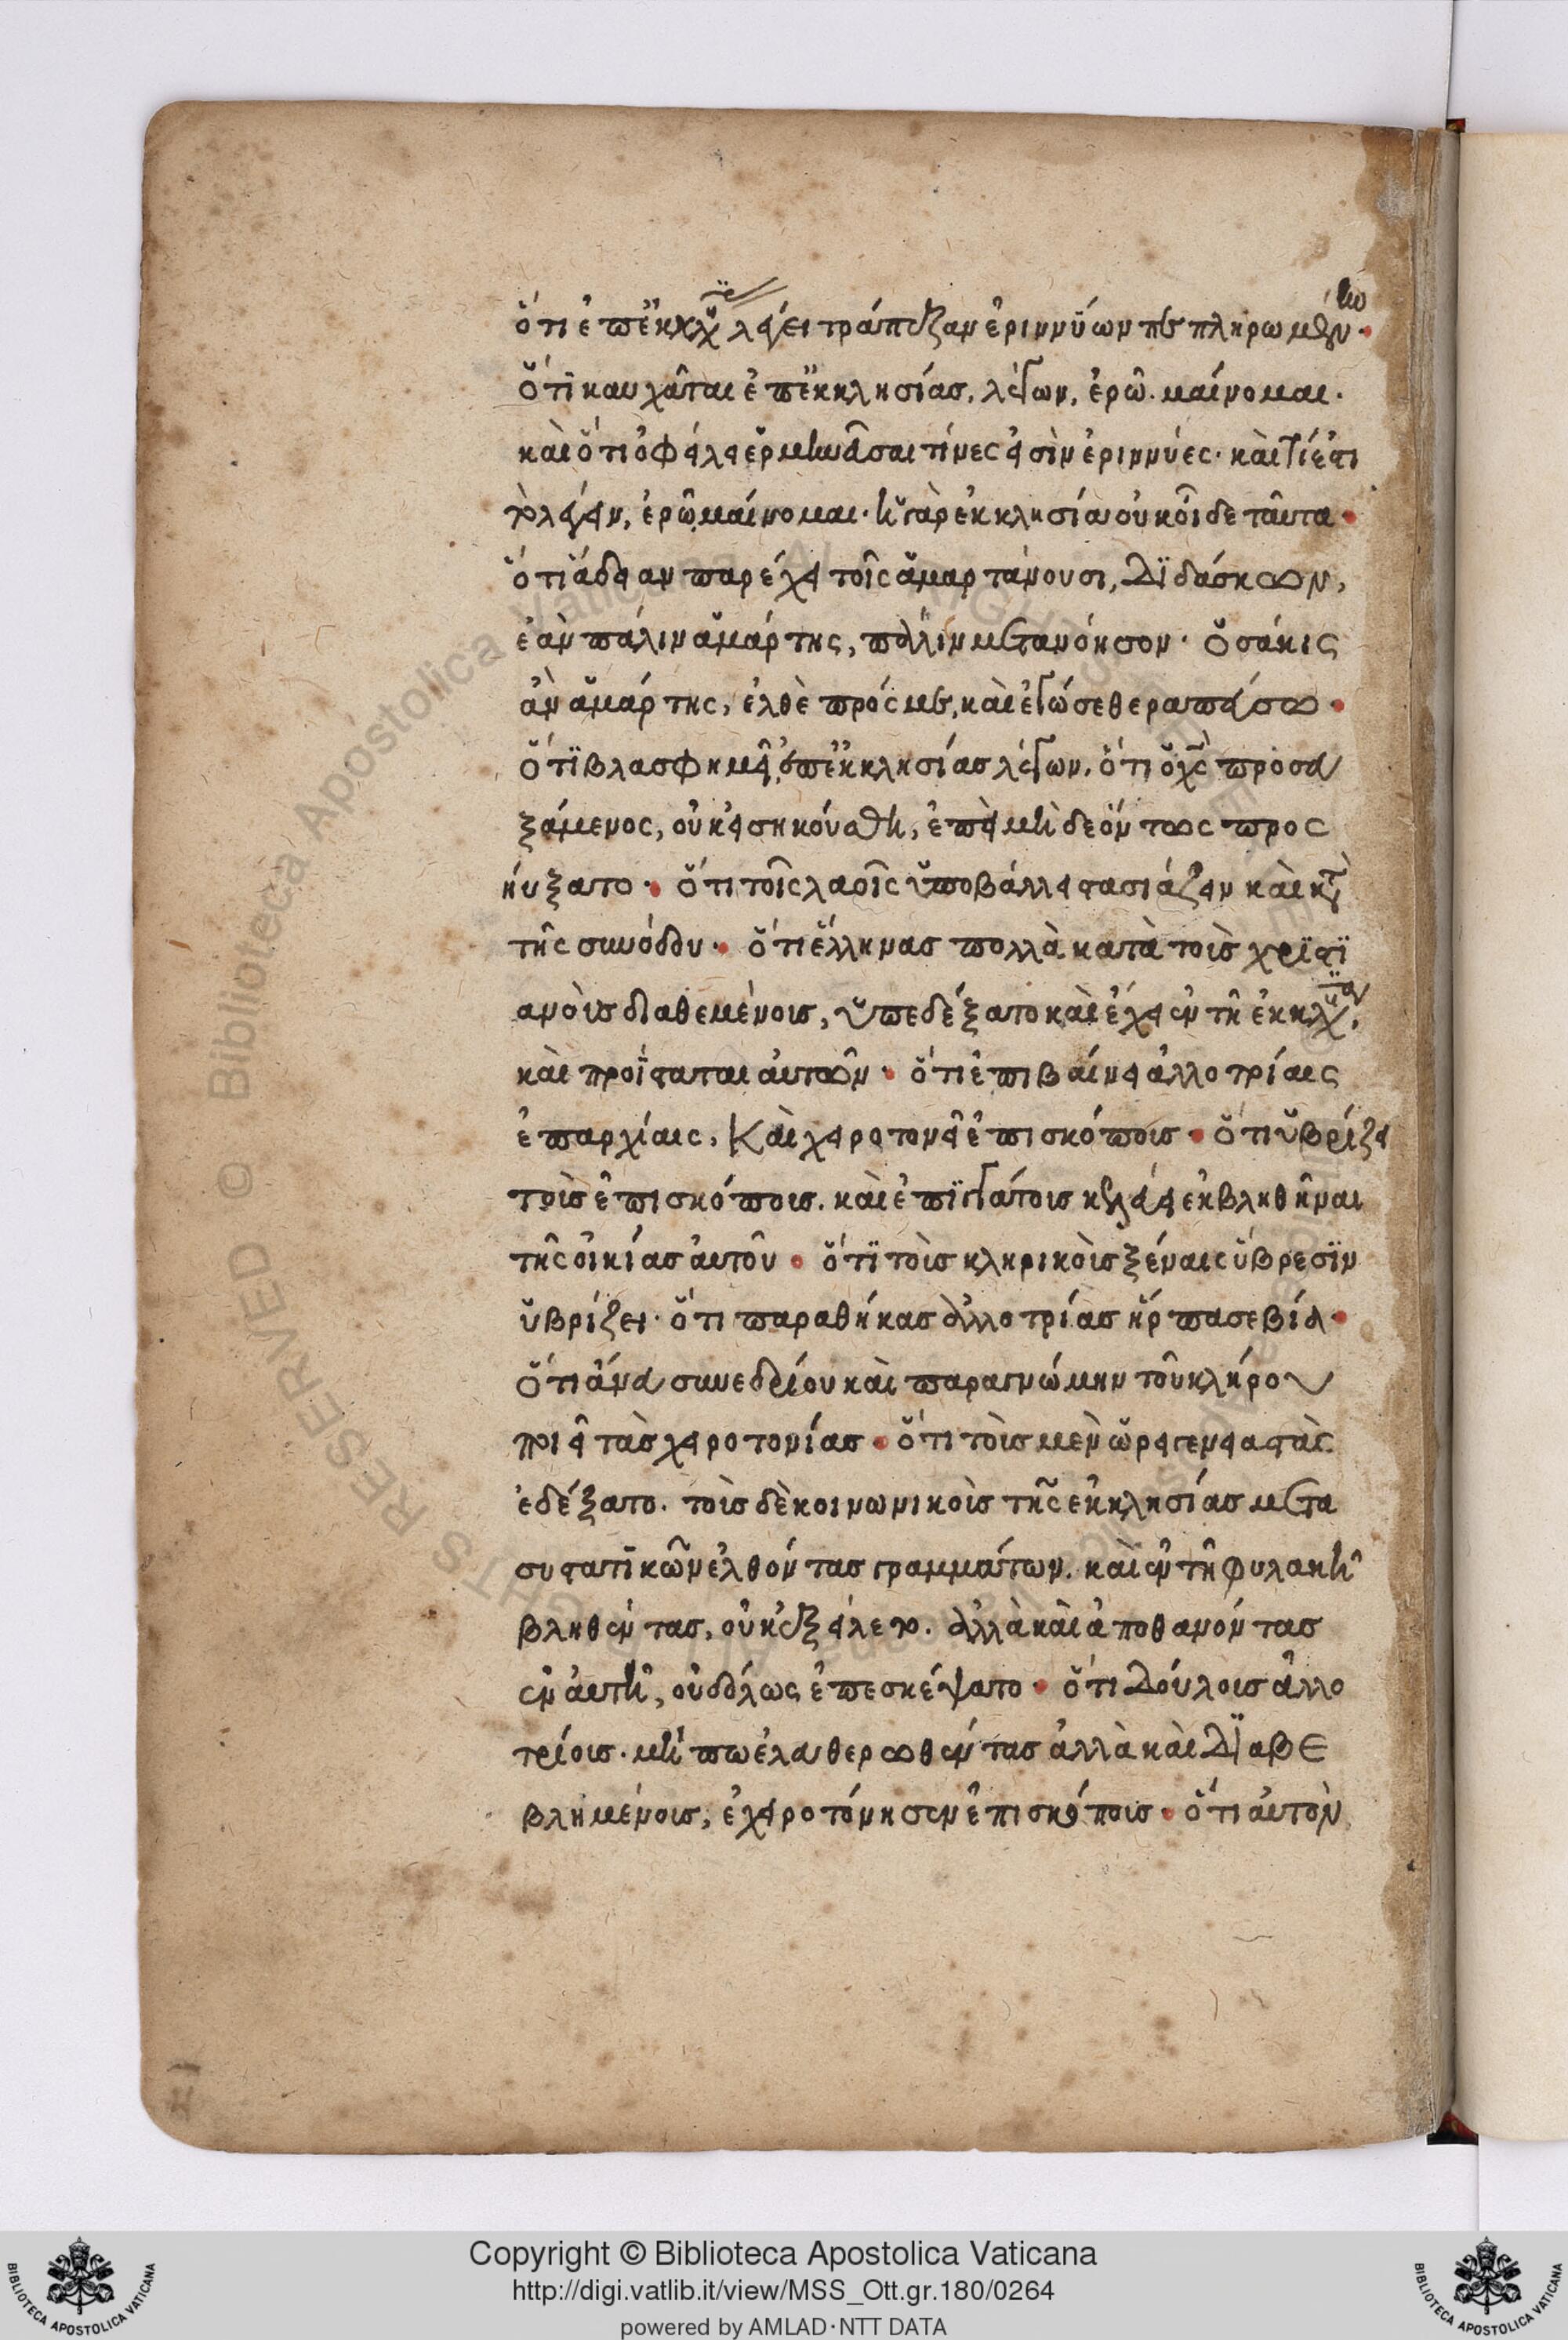 ὅτι ἐπ' ἐκκλησίας λέγει τράπεζαν ἐριννύων πεπληρωμένην·
ὅτι καυχᾶται ἐπ' ἐκκλησίας, λέγων, ἐρῶ. μαίνομαι.
καὶ ὅτι ὀφείλει ἑρμηνεῦσαι τίνες εἰσὶν ἐριννύες. καὶ τί ἐστι
τὸ λέγειν, ἐρῶ μαίνομαι. ἡ γὰρ ἐκκλησία οὐκ οἶδε ταῦτα·
ὅτι ἄδειαν παρέχει τοῖς ἁμαρτάνουσι, διδάσκων,
ἐὰν πάλιν ἁμάρτης, πάλιν μετανόησον. ὁσάκις
ἂν ἁμάρτης, ἐλθὲ πρός με, καὶ ἐγώ σε θεραπεύσω·
ὅτι βλασφημεῖ ἐπ' ἐκκλησίας λέγων, ὅτι ὁ χς προσευ
ξάμενος, οὐκ εἰσηκούσθη, ἐπεὶ μὴ δεόντως προσ
ηύξατο· ὅτι τοὺς λαοὺς ὑποβάλλει στασιάζειν καὶ κατὰ
τῆς συνόδου· ὅτι ἕλληνας πολλὰ κατὰ τοὺς χριστι
ανοὺς διαθεμένους, ὑπεδέξατο καὶ ἔχει ἐν τῇ ἐκκλησία,
καὶ προΐσταται αὐτῶν· ὅτι ἐπιβαίνει ἀλλοτρίαις
ἐπαρχίαις, καὶ χειροτονεῖ ἐπισκόπους· ὅτι ὑβρίζει
τοὺς ἐπισκόπους. καὶ ἐπιστάτους κελεύει ἐκβληθῆναι
τῆς οἰκίας αὐτοῦ· ὅτι τοὺς κληρικοὺς ξέναις ὕβρεσιν
ὑβρίζει. ὅτι παραθήκας ἀλλοτρίας ἥρπασε βία·
ὅτι ἄνευ συνεδρίου καὶ παρὰ γνώμην τοῦ κλήρου
ποιεῖ τὰς χειροτονίας· ὅτι τοὺς μὲν ὠριγενειαστὰς
ἐδέξατο. τοὺς δὲ κοινωνικοὺς τῆς ἐκκλησίας μετὰ
συστατικῶν ἐλθόντας γραμμάτων. καὶ ἐν τῇ φυλακῇ
βληθέντας, οὐκ ἐξείλετο. ἀλλὰ καὶ ἀποθανόντας
ἐν αὐτῇ, οὐδ' ὅλως ἐπεσκέψατο· ὅτι δούλους ἀλλο
τρίους. μή πω ἐλευθερωθέντας ἀλλὰ καὶ διαβε
βλημένους, ἐχειροτόνησεν ἐπισκόπους· ὅτι αὐτὸν
Copyright © Biblioteca Apostolica Vaticana
http://digi.vatlib.it/view/MSS_Ott.gr.180/0264
powered by AMLAD·NTT DATA